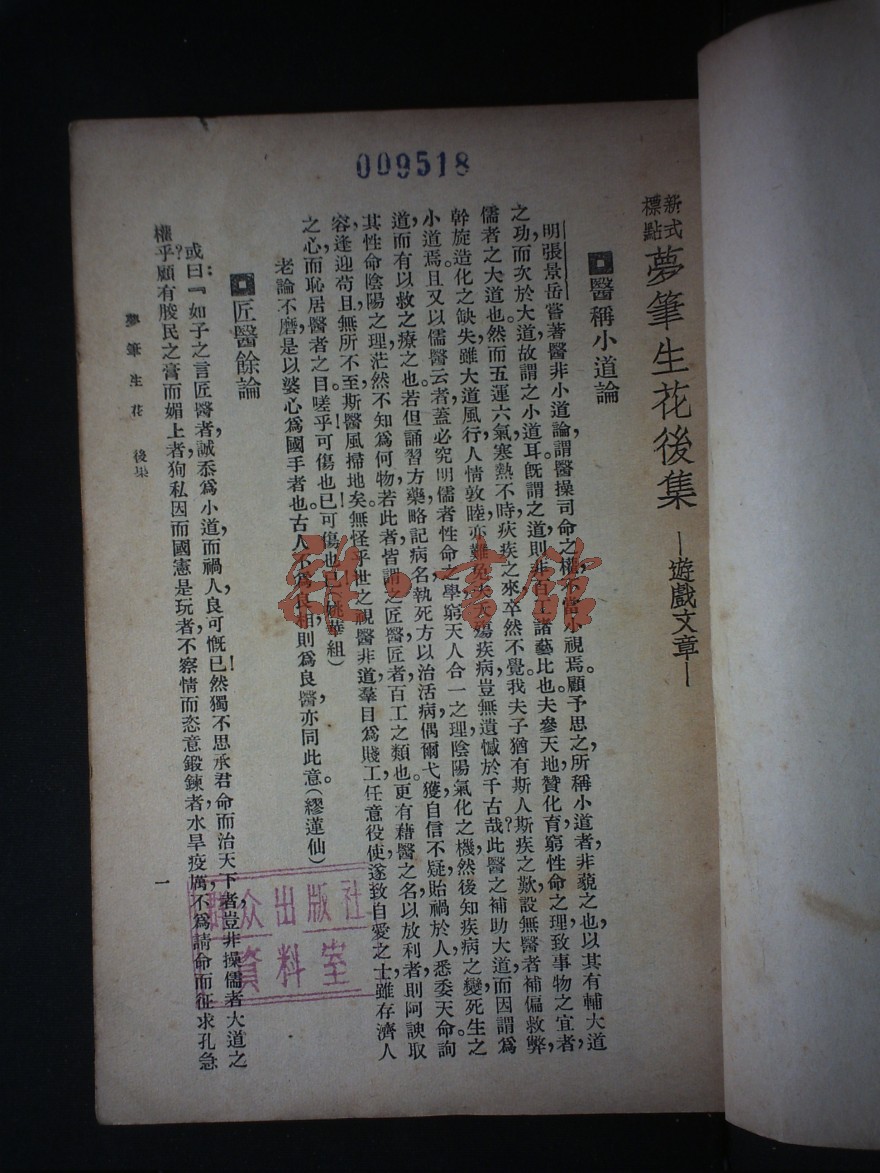 009518
新式標點 夢筆生花後集 —遊戲文章—
醫稱小道論
明張景岳嘗著醫非小道論，謂醫操司命之權，不當小視焉。顧予思之，所稱小道者，非藐之也，以其有輔大道
之功，而次於大道，故謂之小道耳。旣謂之道，則非百工諸藝比也。夫參天地，贊化育，窮性命之理，致事物之宜者，
儒者之大道也。然而五運六氣，寒熱不時，疢疾之來，卒然不覺。我夫子猶有斯人斯疾之歎，設無醫者補偏救弊，
斡旋造化之缺失，雖大道風行，人情敦睦，亦難免夫夭殤疾病，豈無遺憾於千古哉？此醫之補助大道，而因謂爲
小道焉。且又以儒醫云者，蓋必究明儒者性命之學，窮天人合一之理，陰陽氣化之機，然後知疾病之變，死生之
道，而有以救之療之也。若但誦習方藥，略記病名，執死方以治活病，偶爾弋獲，自信不疑，貽禍於人，悉委天命，詢
其性命陰陽之理，茫然不知爲何物，若此者，皆謂之匠醫，匠者百工之類也。更有藉醫之名以放利者，則阿諛取
容，逢迎苟且，無所不至，斯醫風掃地矣！無怪乎世之視醫非道，羣目爲賤工，任意役使，遂致自愛之士，雖存濟人
之心，而恥居醫者之目。嗟乎！可傷也已！可傷也已！（姚華組）
老論不磨，是以婆心爲國手者也。古人不爲良相，則爲良醫，亦同此意。（繆蓮仙）
匠醫餘論
或曰：『如子之言，匠醫者，誠忝爲小道，而禍人良可慨已！然獨不思承君命而治天下者，豈非操儒者大道之
權乎？顧有朘民之膏而媚上者，狥私因而國憲是玩者，不察情而恣意鍛鍊者，水旱疫厲，不爲請命而征求孔急
夢筆生花 後集
一
群众出版社
資料室